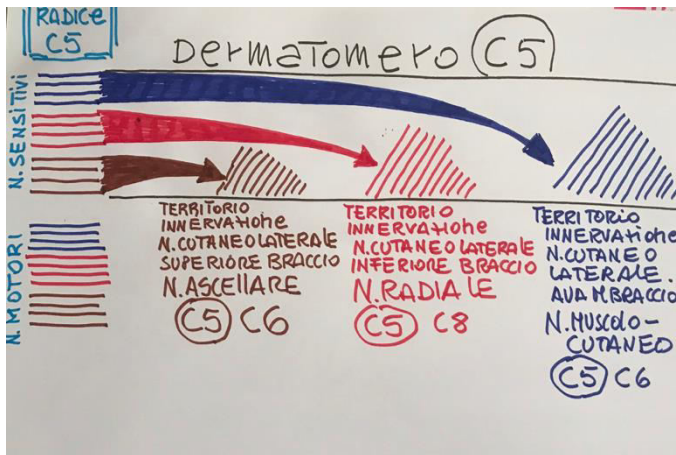 RADICE
C5
DERMATOMERO C5
N. SENSITIVI
N. MOTORI
TERRITORIO
INNERVAZIONE
N. CUTANEO LATERALE
SUPERIORE BRACCIO
N. ASCELLARE
C5 C6
TERRITORIO
INNERVAZIONE
N. CUTANEO LATERALE
INFERIORE BRACCIO
N. RADIALE
C5 C8
TERRITORIO
INNERVAZIONE
N. CUTANEO
LATERALE.
AVAMBRACCIO
N. MUSCOLO-
CUTANEO
C5 C6